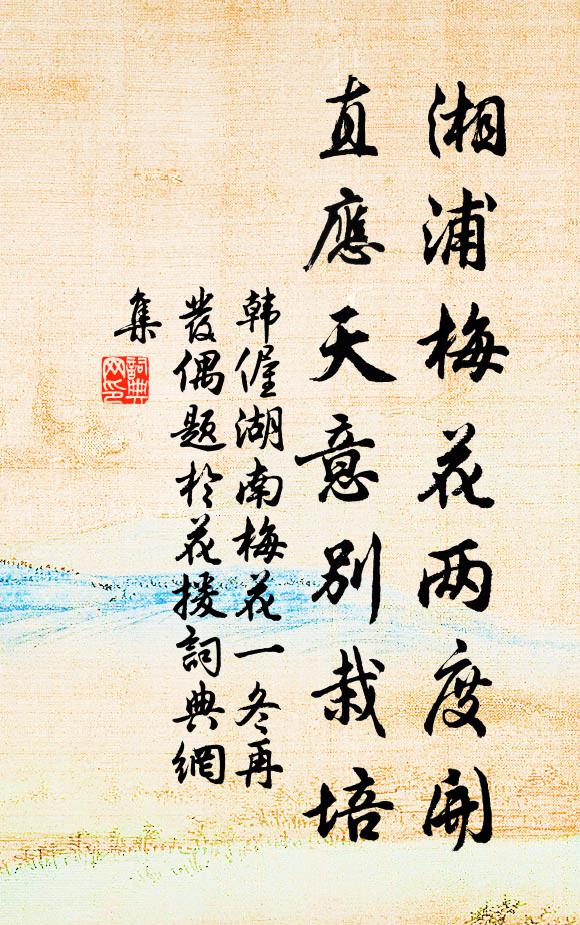 湘浦梅花两度開
直應天意別栽培
韩偓湖南梅花一冬再
發偶题於花援詞典網
集
詞典
网印